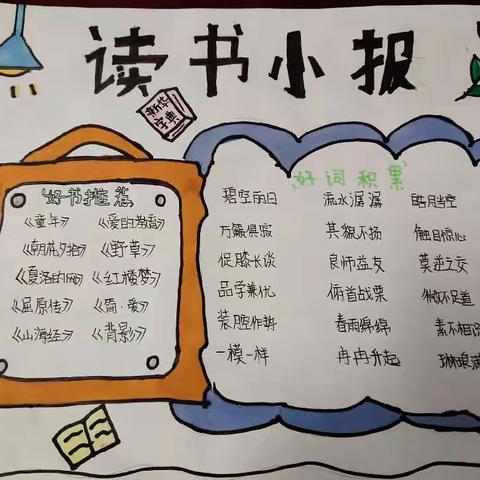 读书小报
新华
字典
好书推荐
《童年》 《爱的教育》
《朝花夕拾》 《野草》
《夏洛的网》 《红楼梦》
《屈原传》 《简·爱》
《山海经》 《背影》
好词积累
碧空丽日 流水潺潺 皓月当空
万籁俱寂 其貌不扬 触目惊心
促膝长谈 良师益友 莫逆之交
品学兼优 俯首战栗 微不足道
装腔作势 春雨绵绵 素不相识
一模一样 冉冉升起 琳琅满